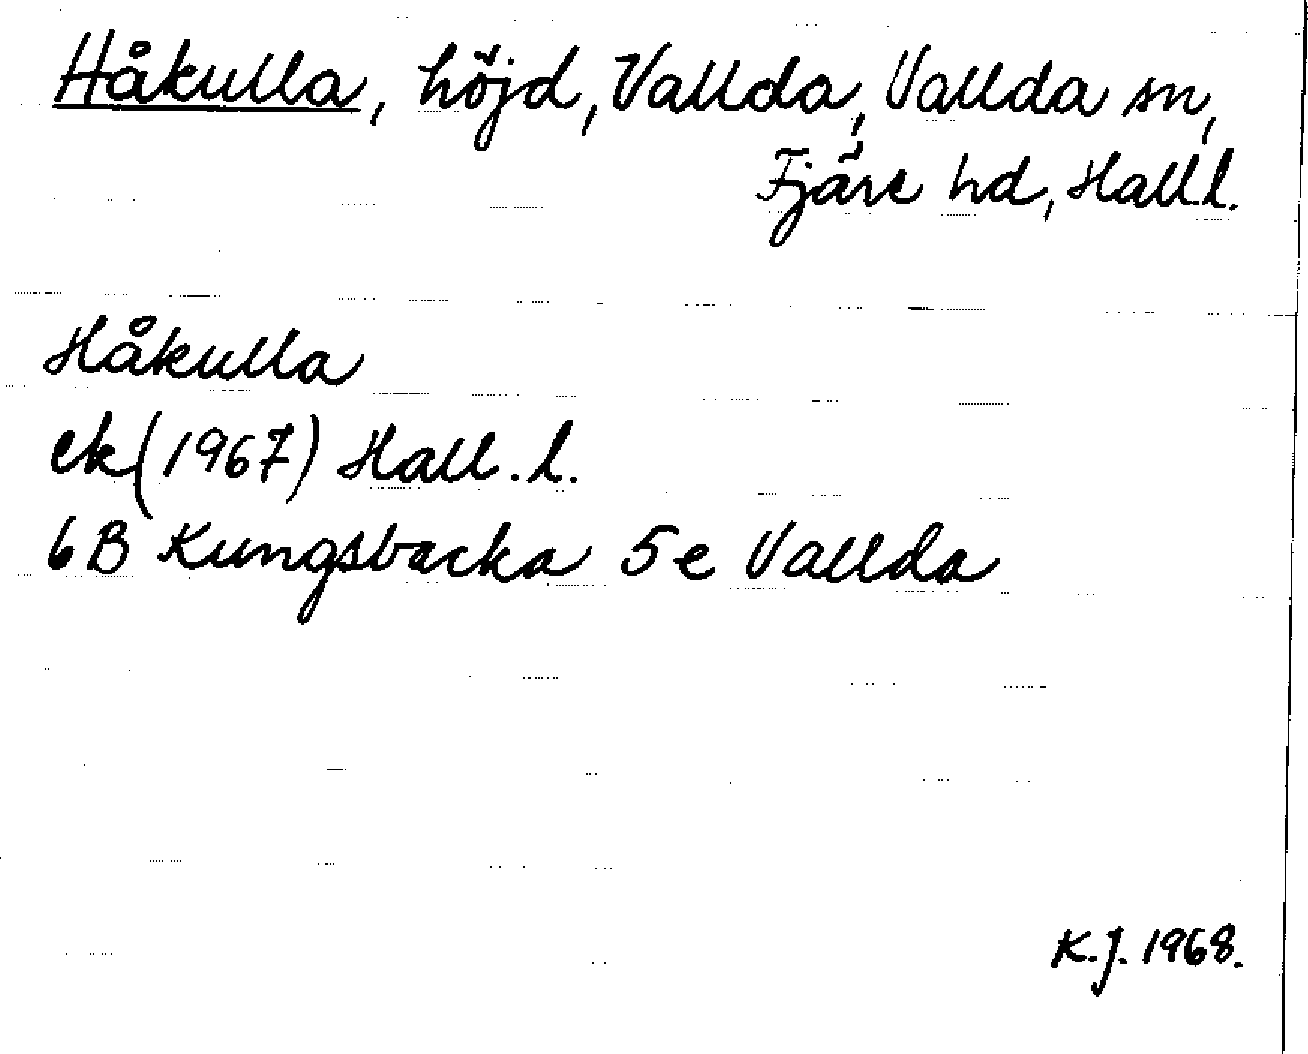 Håkulla, höjd, Vallda, Vallda sn,
Fjäre hd, Hall.l.
Håkulla
ek (1967) Hall.l.
6B Kungsbacka 5e Vallda
K.J. 1968.